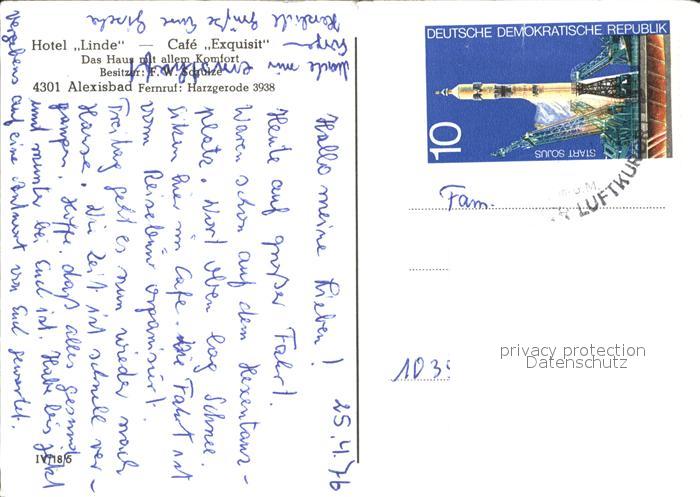 Hotel „Linde" — Café „Exquisit"
Das Haus mit allem Komfort
Besitzer: F. W. Schulze
4301 Alexisbad Fernruf: Harzgerode 3938
IV/18/5
25.4.76
Hallo meine Lieben!
Heute auf großer Fahrt.
Waren schon auf dem Hexentanz-
platz. Dort oben lag Schnee.
Sitzen hier im Cafe. Die Fahrt ist
vom Reisebüro organisiert.
Freitag geht es nun wieder nach
Hause. Die Zeit ist schnell ver-
gangen. Hoffe, daß alles gesund
und munter bei Euch ist. Habe bis jetzt
vergebens auf eine Antwort von Euch gewartet.
Mache mir ernsthaft
Sorgen
Herzliche Grüße Eure
Gisela
DEUTSCHE DEMOKRATISCHE REPUBLIK
10
START SOJUS
LUFTKUR
Fam.
privacy protection
Datenschutz